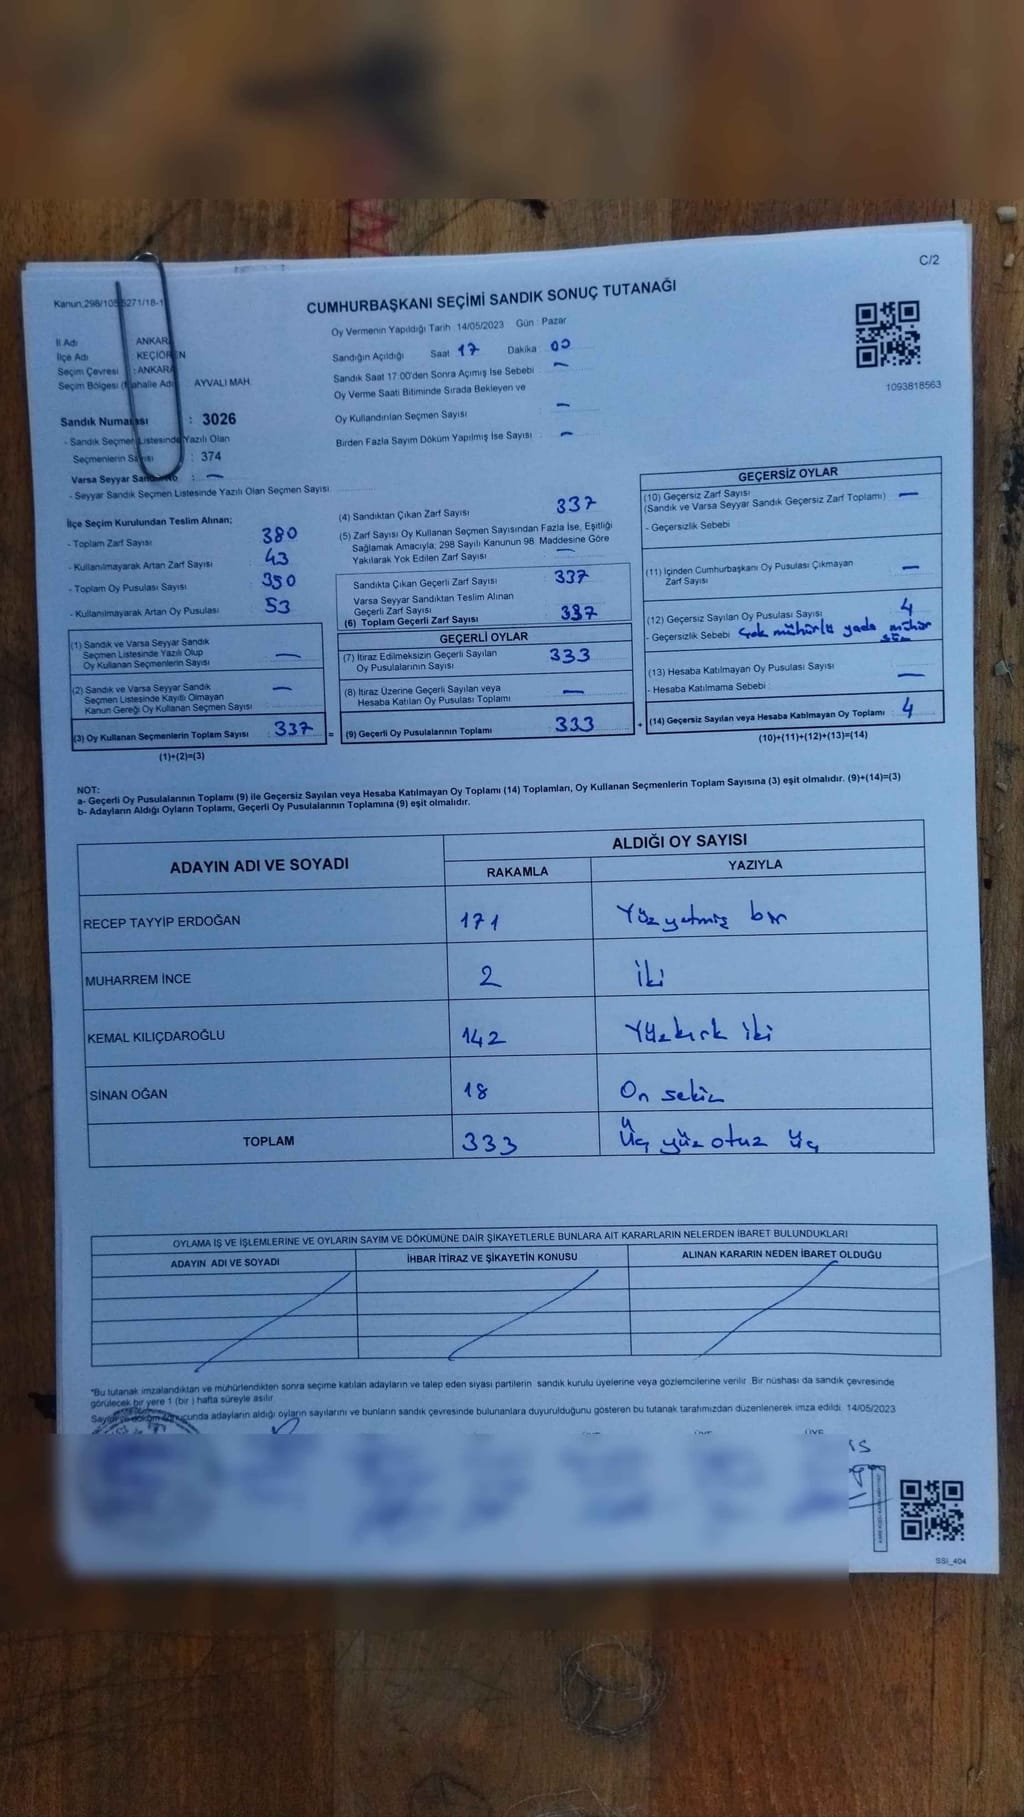 C/2
Kanun:298/105
5271/18-1
CUMHURBAŞKANI SEÇİMİ SANDIK SONUÇ TUTANAĞI
Oy Vermenin Yapıldığı Tarih 14/05/2023 Gün : Pazar
İl Adı ANKARA
İlçe Adı KEÇİÖREN
Seçim Çevresi : ANKARA
Seçim Bölgesi (Mahalle Adı AYVALI MAH.
Sandığın Açıldığı Saat 17 Dakika 00
Sandık Saat 17:00'den Sonra Açımış İse Sebebi : —
Oy Verme Saati Bitiminde Sırada Bekleyen ve
Oy Kullandırılan Seçmen Sayısı : —
Birden Fazla Sayım Döküm Yapılmış İse Sayısı : —
1093818563
Sandık Numarası : 3026
- Sandık Seçmen Listesinde Yazılı Olan
Seçmenlerin Sayısı : 374
Varsa Seyyar Sandık No : —
- Seyyar Sandık Seçmen Listesinde Yazılı Olan Seçmen Sayısı:
İlçe Seçim Kurulundan Teslim Alınan;
- Toplam Zarf Sayısı : 380
- Kullanılmayarak Artan Zarf Sayısı : 43
- Toplam Oy Pusulası Sayısı : 350
- Kullanılmayarak Artan Oy Pusulası : 53
(1) Sandık ve Varsa Seyyar Sandık
Seçmen Listesinde Yazılı Olup
Oy Kullanan Seçmenlerin Sayısı : —
(2) Sandık ve Varsa Seyyar Sandık
Seçmen Listesinde Kayıtlı Olmayan
Kanun Gereği Oy Kullanan Seçmen Sayısı : —
(3) Oy Kullanan Seçmenlerin Toplam Sayısı : 337 =
(1)+(2)=(3)
(4) Sandıktan Çıkan Zarf Sayısı : 337
(5) Zarf Sayısı Oy Kullanan Seçmen Sayısından Fazla İse, Eşitliği
Sağlamak Amacıyla, 298 Sayılı Kanunun 98. Maddesine Göre
Yakılarak Yok Edilen Zarf Sayısı : —
Sandıkta Çıkan Geçerli Zarf Sayısı : 337
Varsa Seyyar Sandıktan Teslim Alınan
Geçerli Zarf Sayısı
(6) Toplam Geçerli Zarf Sayısı : 337
GEÇERLİ OYLAR
(7) İtiraz Edilmeksizin Geçerli Sayılan
Oy Pusulalarının Sayısı : 333
(8) İtiraz Üzerine Geçerli Sayılan veya
Hesaba Katılan Oy Pusulası Toplamı : —
(9) Geçerli Oy Pusulalarının Toplamı : 333 +
GEÇERSİZ OYLAR
(10) Geçersiz Zarf Sayısı
(Sandık ve Varsa Seyyar Sandık Geçersiz Zarf Toplamı) : —
- Geçersizlik Sebebi :
(11) İçinden Cumhurbaşkanı Oy Pusulası Çıkmayan
Zarf Sayısı : —
(12) Geçersiz Sayılan Oy Pusulası Sayısı : 4
- Geçersizlik Sebebi : Çok mühürlü yada mühür
(13) Hesaba Katılmayan Oy Pusulası Sayısı : —
- Hesaba Katılmama Sebebi :
(14) Geçersiz Sayılan veya Hesaba Katılmayan Oy Toplamı : 4
(10)+(11)+(12)+(13)=(14)
NOT:
a- Geçerli Oy Pusulalarının Toplamı (9) ile Geçersiz Sayılan veya Hesaba Katılmayan Oy Toplamı (14) Toplamları, Oy Kullanan Seçmenlerin Toplam Sayısına (3) eşit olmalıdır. (9)+(14)=(3)
b- Adayların Aldığı Oyların Toplamı, Geçerli Oy Pusulalarının Toplamına (9) eşit olmalıdır.
ADAYIN ADI VE SOYADI
ALDIĞI OY SAYISI
RAKAMLA YAZIYLA
RECEP TAYYİP ERDOĞAN 171 Yüz yetmiş bir
MUHARREM İNCE 2 iki
KEMAL KILIÇDAROĞLU 142 Yüzkırk iki
SİNAN OĞAN 18 On sekiz
TOPLAM 333 Üç yüz otuz üç
OYLAMA İŞ VE İŞLEMLERİNE VE OYLARIN SAYIM VE DÖKÜMÜNE DAİR ŞİKAYETLERLE BUNLARA AİT KARARLARIN NELERDEN İBARET BULUNDUKLARI
ADAYIN ADI VE SOYADI İHBAR İTİRAZ VE ŞİKAYETİN KONUSU ALINAN KARARIN NEDEN İBARET OLDUĞU
*Bu tutanak imzalandıktan ve mühürlendikten sonra seçime katılan adayların ve talep eden siyasi partilerin sandık kurulu üyelerine veya gözlemcilerine verilir. Bir nüshası da sandık çevresinde
görülecek bir yere 1 (bir ) hafta süreyle asılır.
Sayım ve döküm sonucunda adayların aldığı oyların sayılarını ve bunların sandık çevresinde bulunanlara duyurulduğunu gösteren bu tutanak tarafımızdan düzenlenerek imza edildi. 14/05/2023
SSI_404